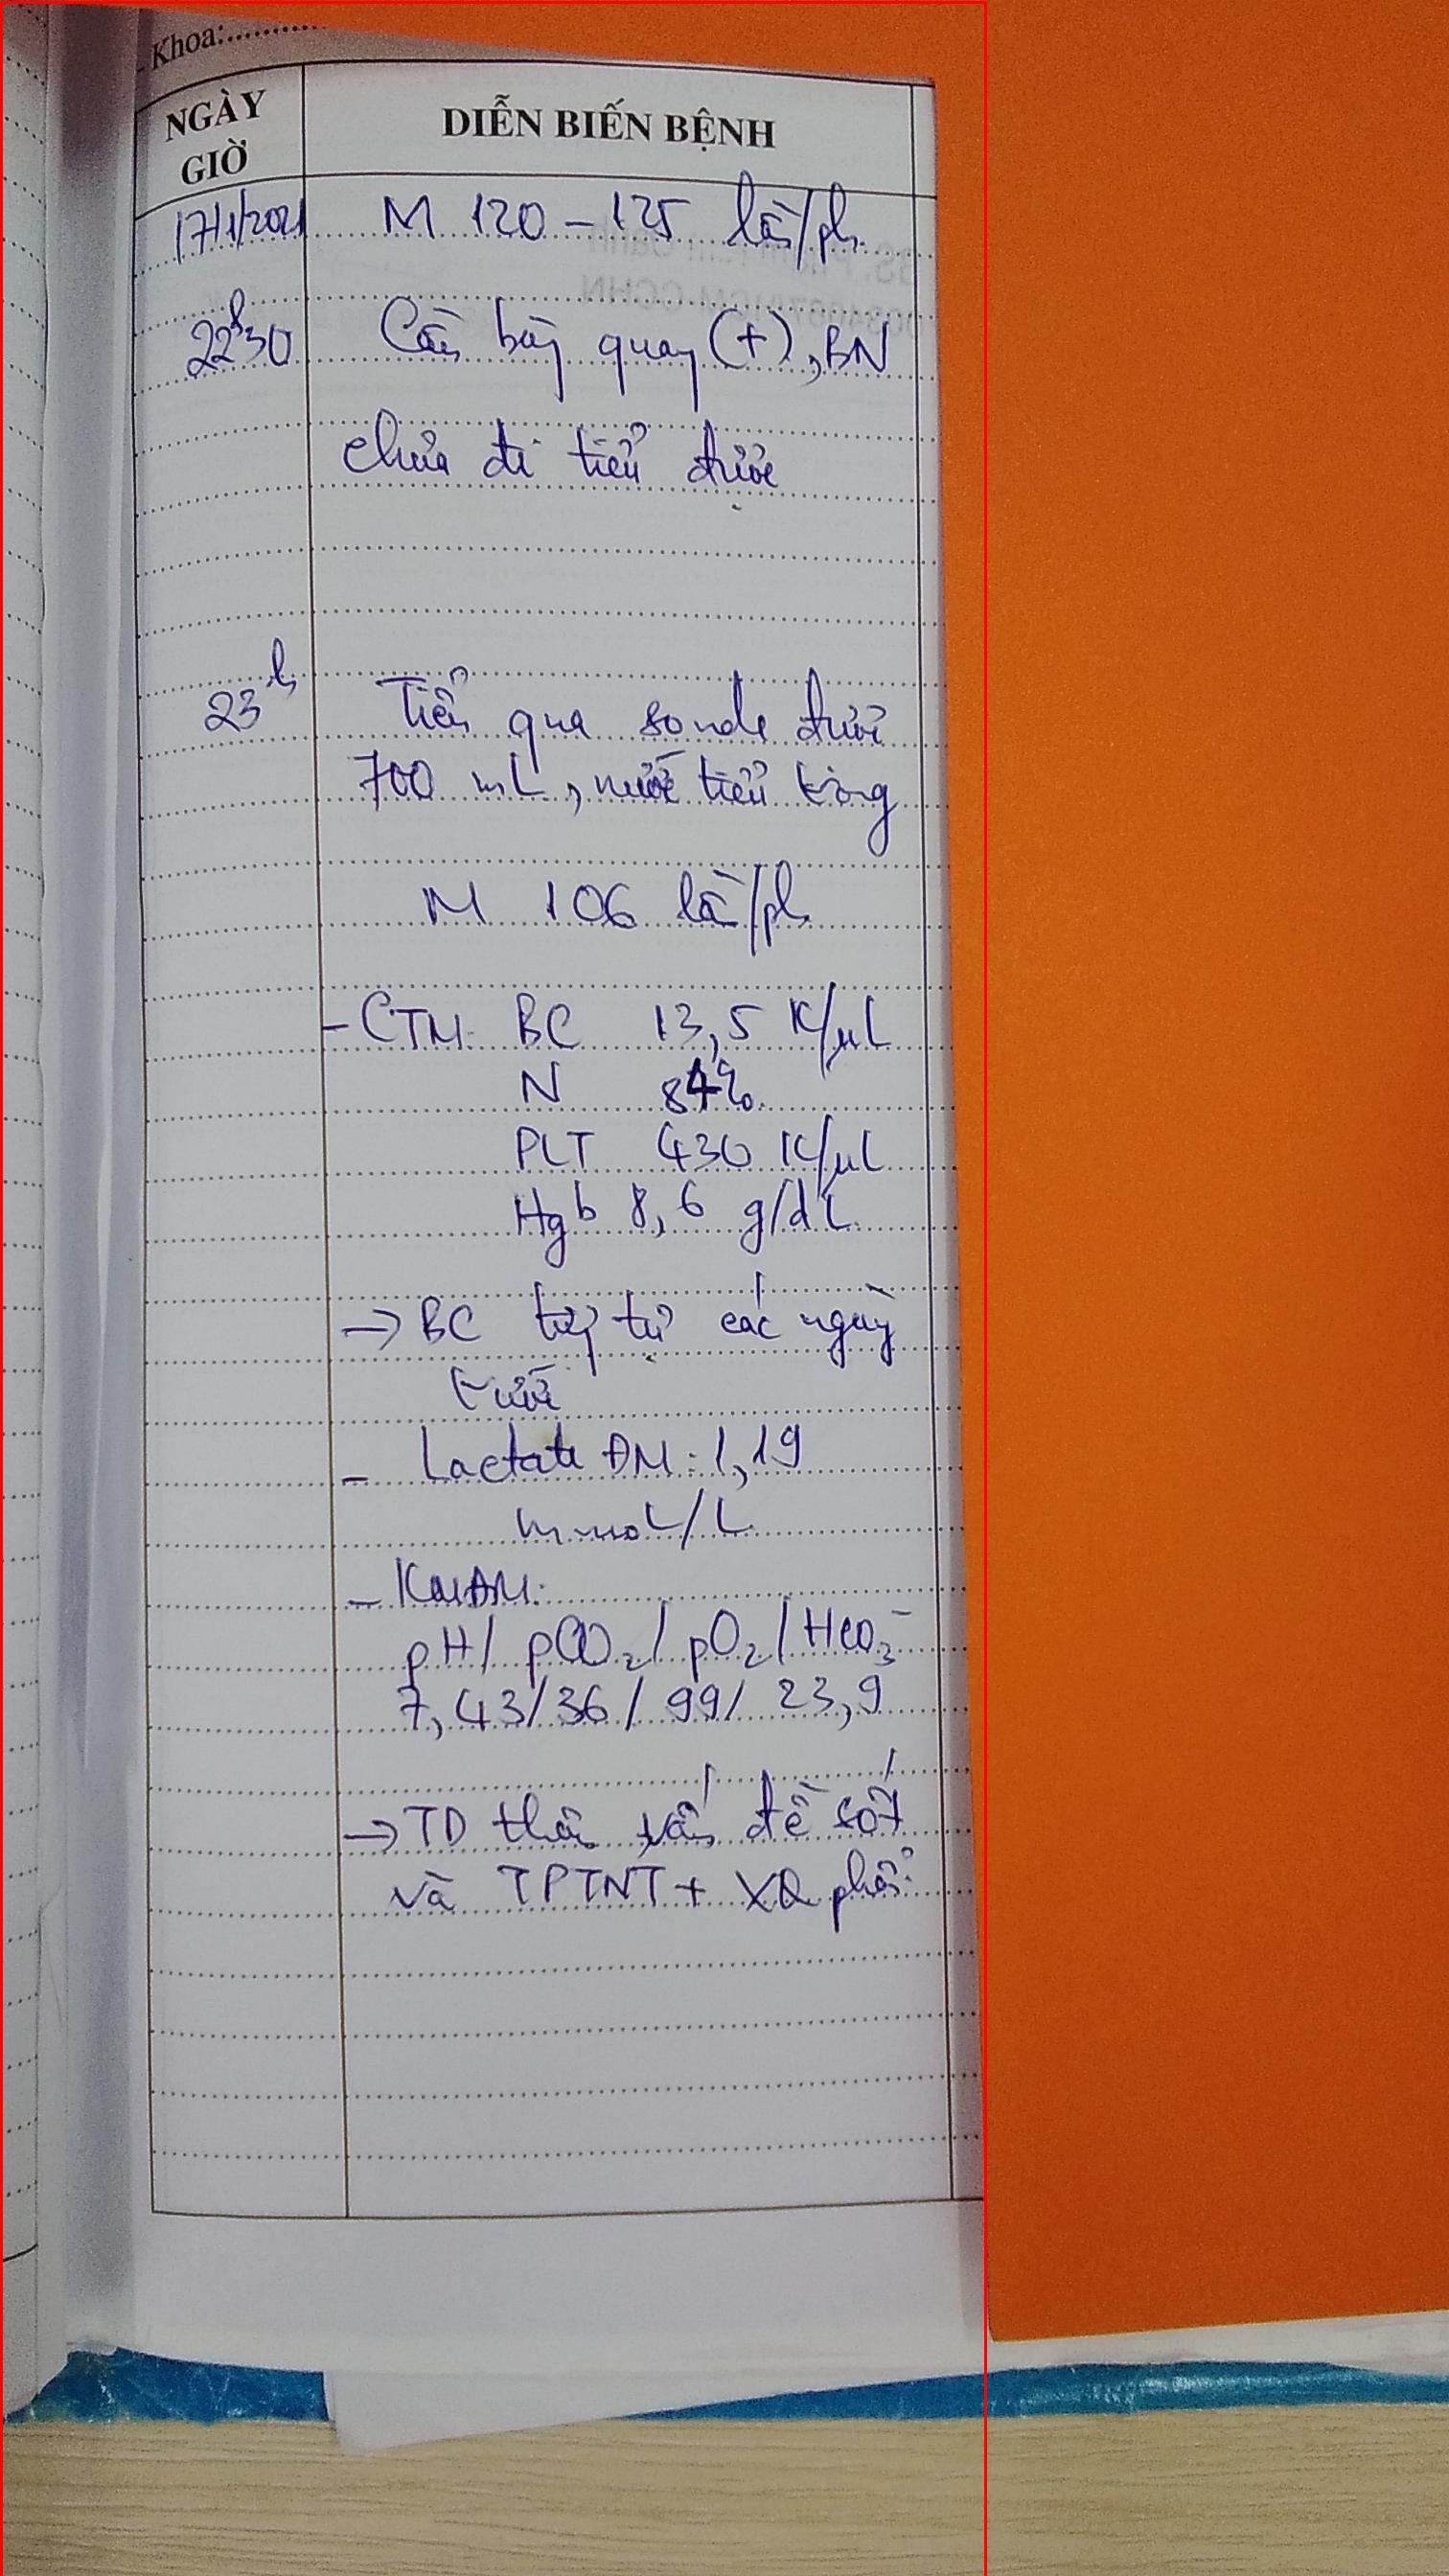 - Khoa:..........
NGÀY GIỜ
DIỄN BIẾN BỆNH
17/1/2021 M 120 - 125 lần/ph
22h30 Cầu bàng quang (+), BN
chưa đi tiểu được
23h Tiểu qua sonde được
700 mL, nước tiểu trong
M 106 lần/ph
- CTM BC 13,5 K/µL
N 84%
PLT 430 K/µL
Hgb 8,6 g/dL
→ BC tương tự các ngày
trước
- Lactate ĐM: 1,19
mmoL/L
- KMĐM:
pH / pCO2 / pO2 / HCO3-
7,43 / 36 / 99 / 23,9
→ TD thêm vấn đề sốt
và TPTNT + XQ phổi